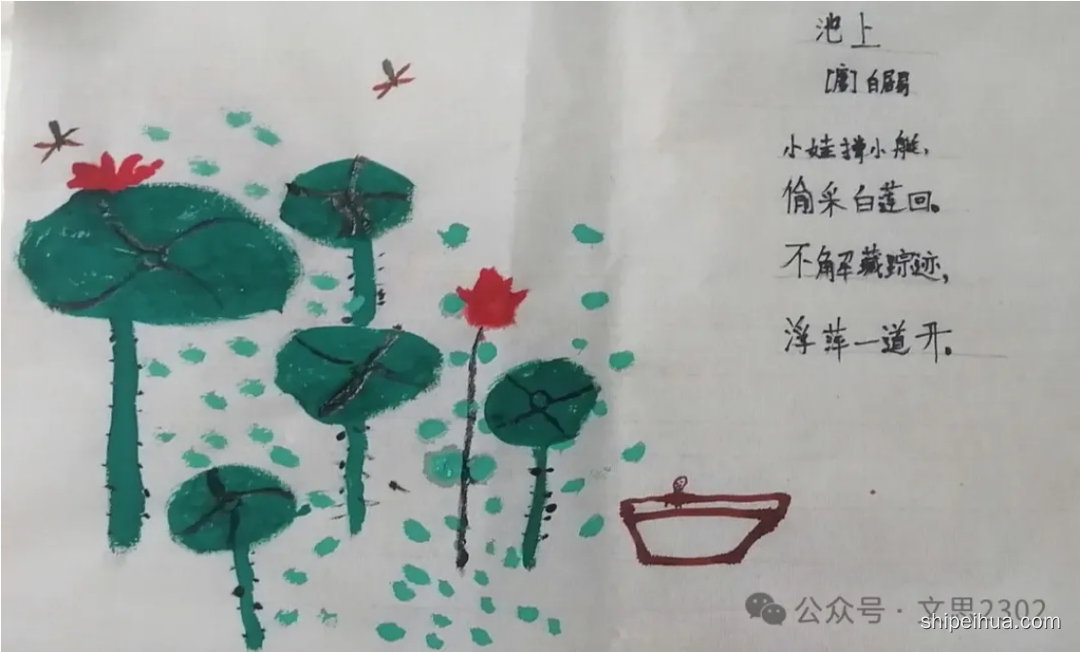 池上
[唐] 白居易
小娃撑小艇，
偷采白莲回。
不解藏踪迹，
浮萍一道开。
公众号·文思2302
shipeihua.com